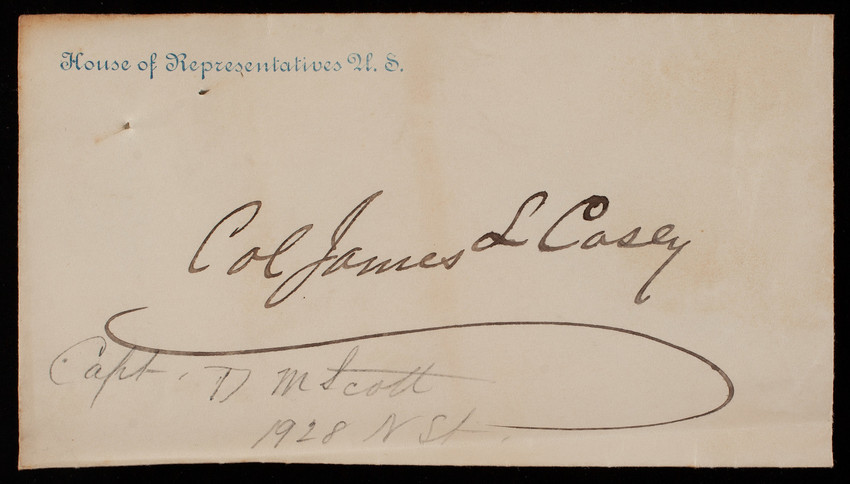 House of Representatives U. S.
Col James L Casey
Capt. D M Scott
1928 N St.